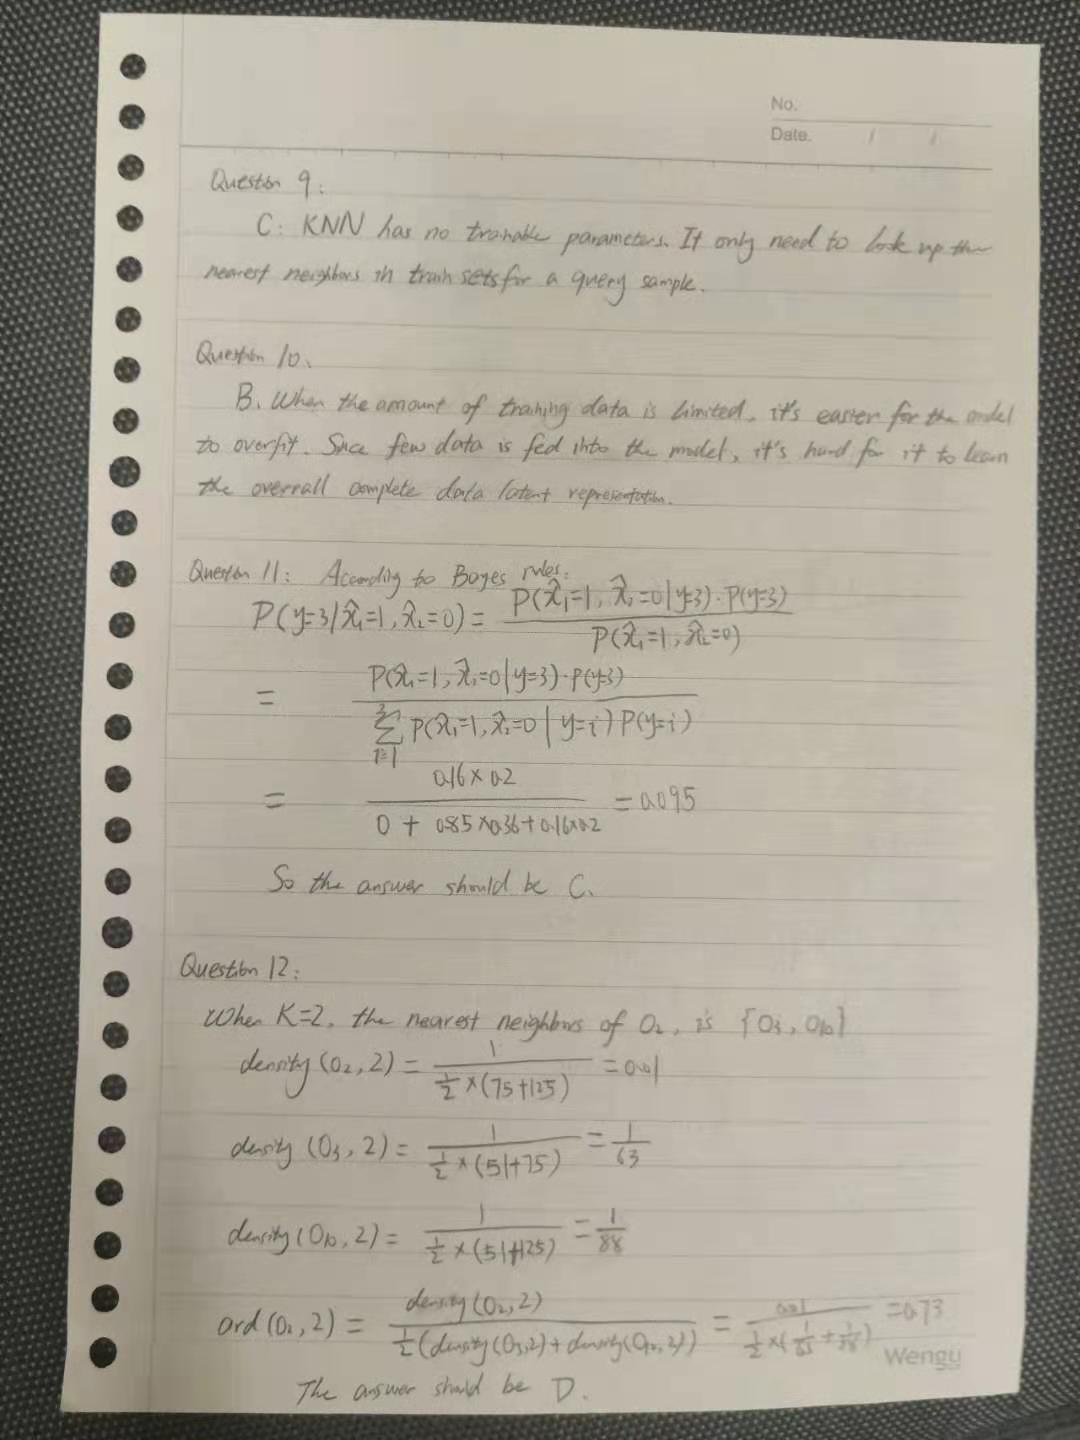 No.
Date. / /
Question 9:
C: KNN has no trainable parameters. It only need to look up the
nearest neighbors in train sets for a query sample.
Question 10.
B. When the amount of training data is limited, it's easier for the model
to overfit. Since few data is fed into the model, it's hard for it to learn
the overrall complete data latent representation.
Question 11: According to Bayes rules:
P(y=3|x̂₁=1, x̂₂=0) = P(x̂₁=1, x̂₂=0|y=3)·P(y=3)
P(x̂₁=1, x̂₂=0)
= P(x̂₁=1, x̂₂=0|y=3)·P(y=3)
3 Σ i=1 P(x̂₁=1, x̂₂=0|y=i) P(y=i)
= 0.16×0.2
0 + 0.85×0.36+0.16×0.2 = 0.095
So the answer should be C.
Question 12:
When K=2, the nearest neighbors of O₂, is {O₃, O₁₀}
density(O₂, 2) = 1
½×(75+125) = 0.01
density(O₃, 2) = 1
½×(51+75) = 1/63
density(O₁₀, 2) = 1
½×(51+125) = 1/88
ard(O₂, 2) = density(O₂, 2)
½(density(O₃,2)+density(O₁₀,2)) = 0.01
½×(1/63+1/88) = 0.73
Wengu
The answer should be D.